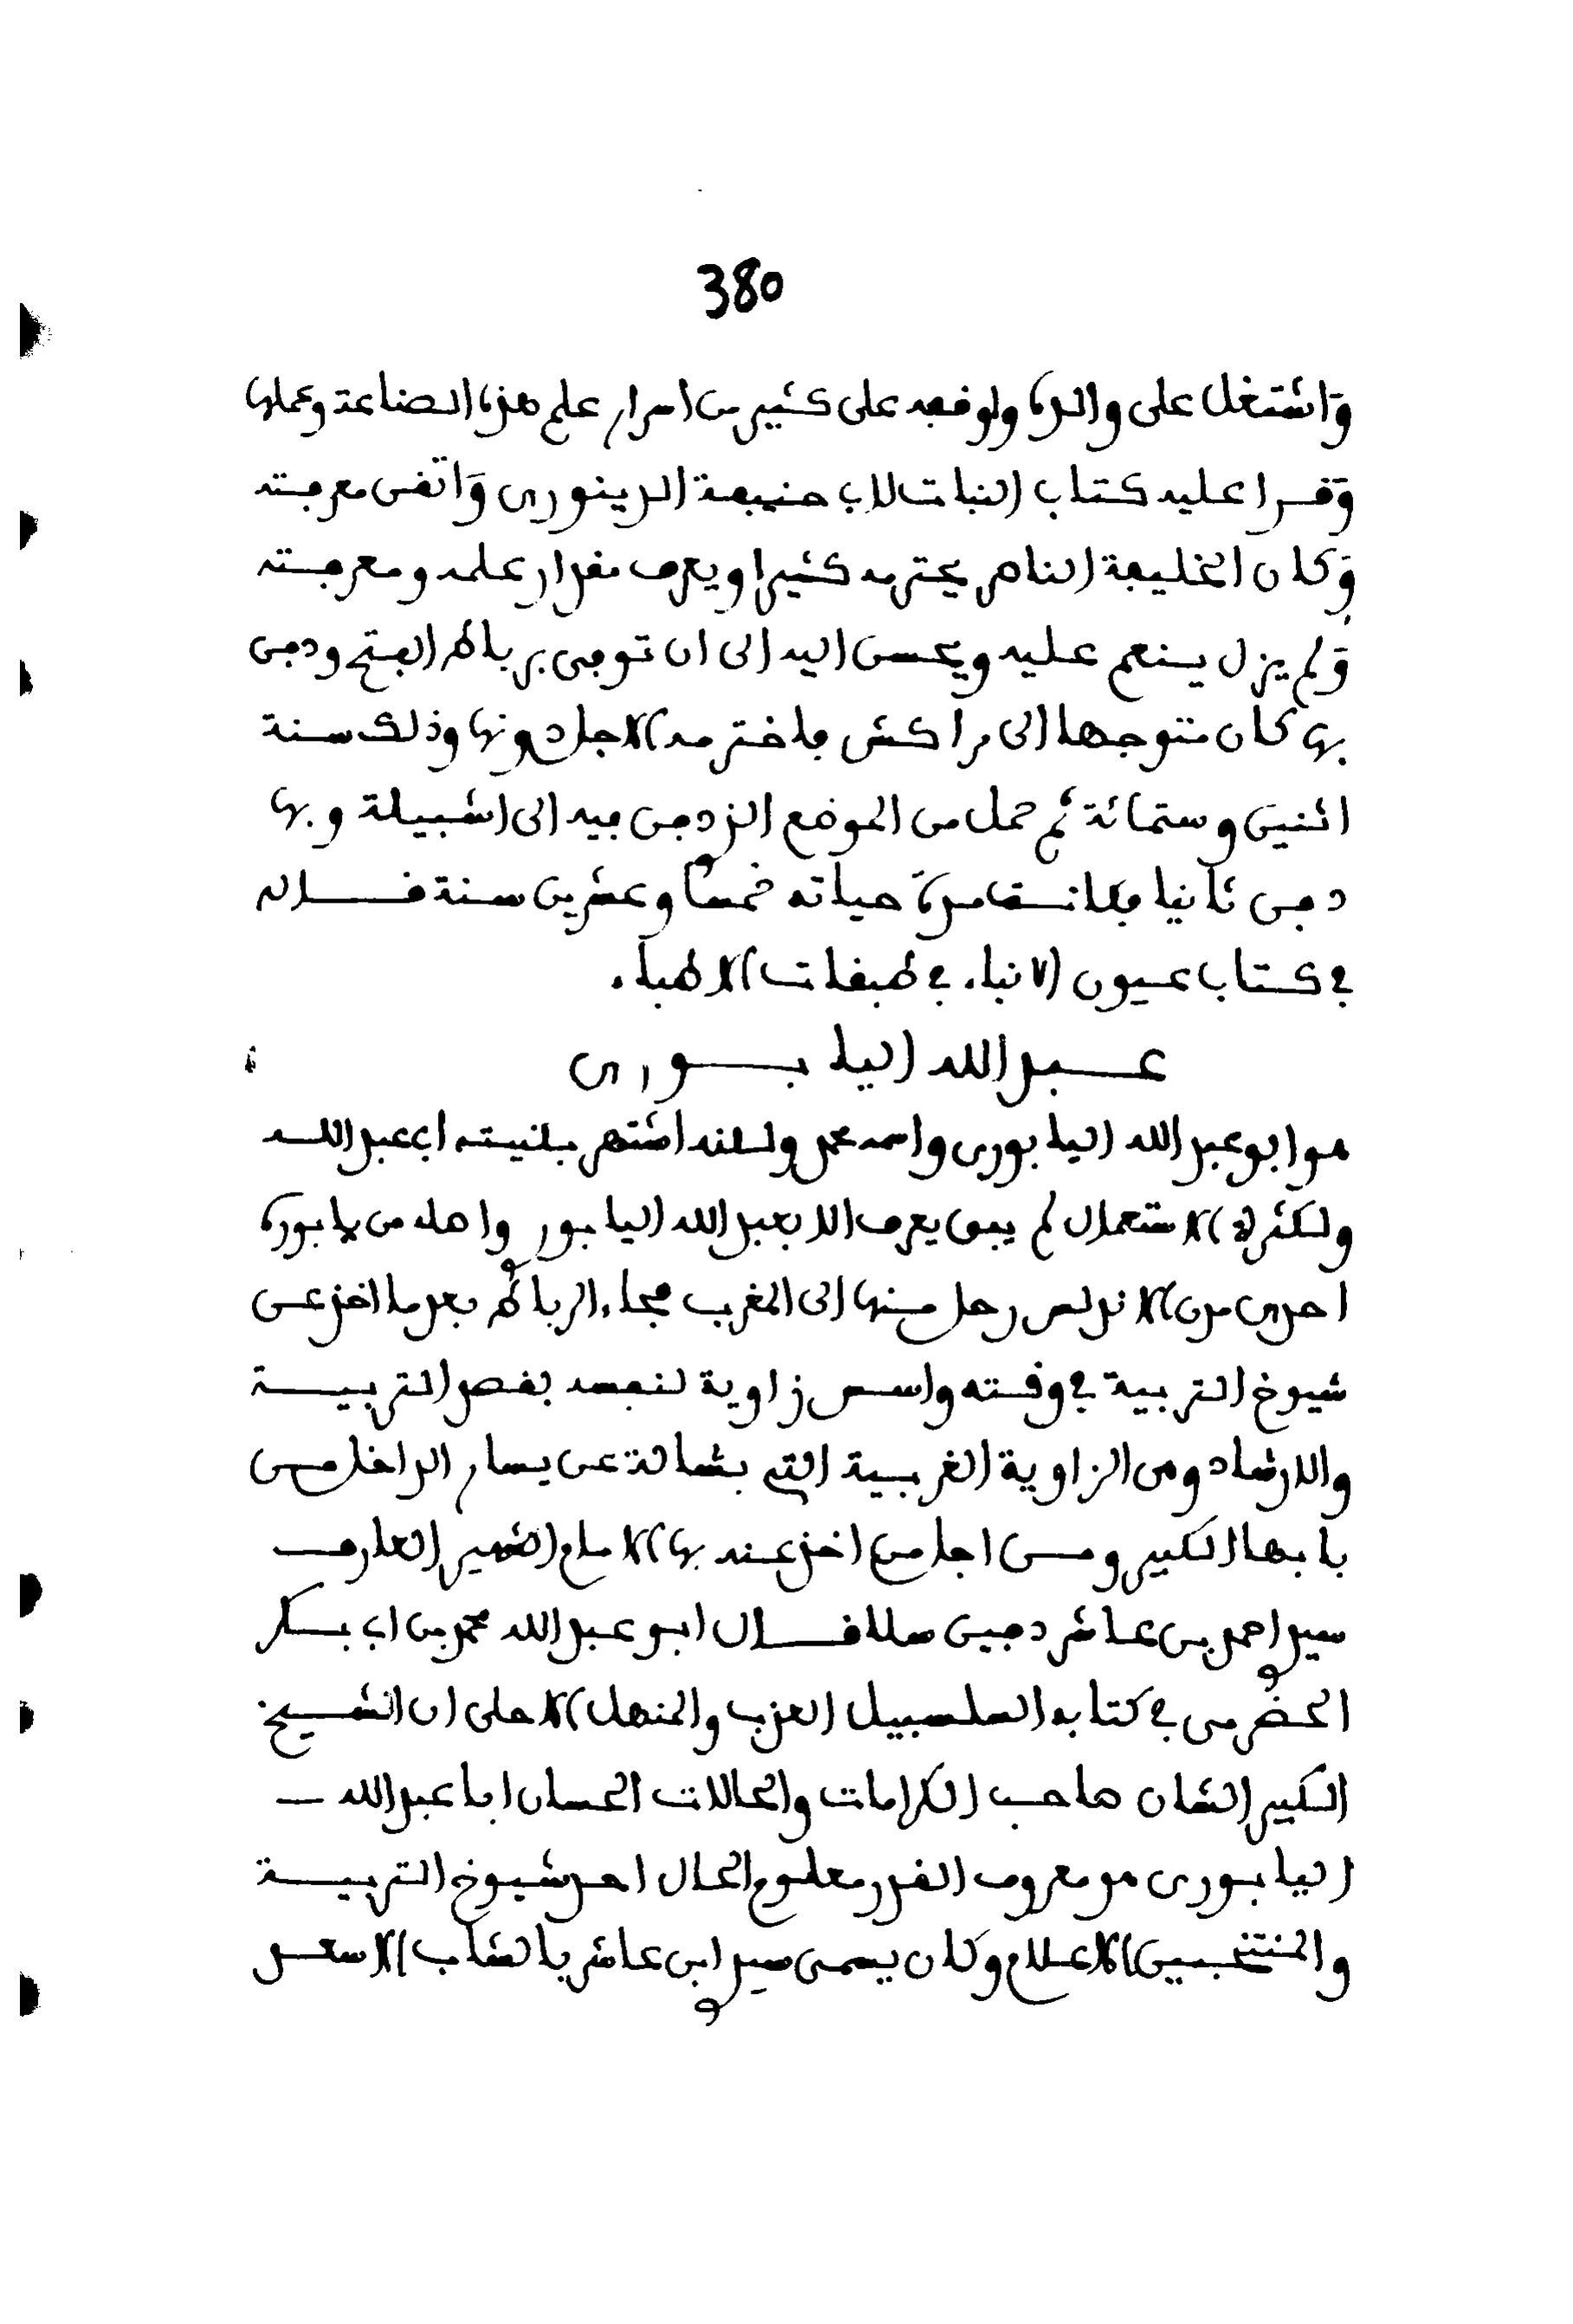 380
واشتغل على والده ولوقفه على كثير من اسرار علم هذه الصناعة وعملها
وقرا عليه كتاب النبات لابي حنيفة الدينوري واتقن معرفته
وكان الخليفة الناصر يحترمه كثيرا ويعرف مقدار علمه ومعرفته
ولم يزل ينعم عليه ويحسن اليه الى ان توفي برباط الفتح ودفن
بها كان متوجها الى مراكش فاخترمه الاجل دونها وذلك سنة
اثنين وستمائة ثم حمل من الموضع الذي دفن فيه الى اشبيلة وبها
دفن ثانيا فكانت مدة حياته خمسا وعشرين سنة قاله
في كتاب عيون الانباء في طبقات الاطباء
عبد الله اليابوري
هو ابو عبد الله اليابوري واسمه محمد ولكنه اشتهر بكنيته ابي عبد الله
ولكثرة الاستعمال لم يبق يعرف الا بعبد الله اليابور واصله من يابورة
احدى مدن الاندلس رحل منها الى المغرب فجاء الرباط بعد ما اخذ عن
شيوخ التربية في وقته واسس زاوية لنفسه بقصد التربية
والارشاد وهي الزاوية الغربية التي بشالة عن يسار الداخل من
بابها الكبير ومن اجل من اخذ عنه بها الامام الشهير العارف
سيد احمد بن عاشر دفين سلا قال ابو عبد الله محمد بن ابي بكر
الحضرمي في كتابه السلسبيل العذب والمنهل الاحلى ان الشيخ
الكبير الشان صاحب الكرامات والحالات الحسان ابا عبد الله
اليابوري هو معروف القدر معلوم الحال احد شيوخ التربية
والمنتخبين الاعلام وكان يسمى سيد ابن عاشر بالشاب الاسعد